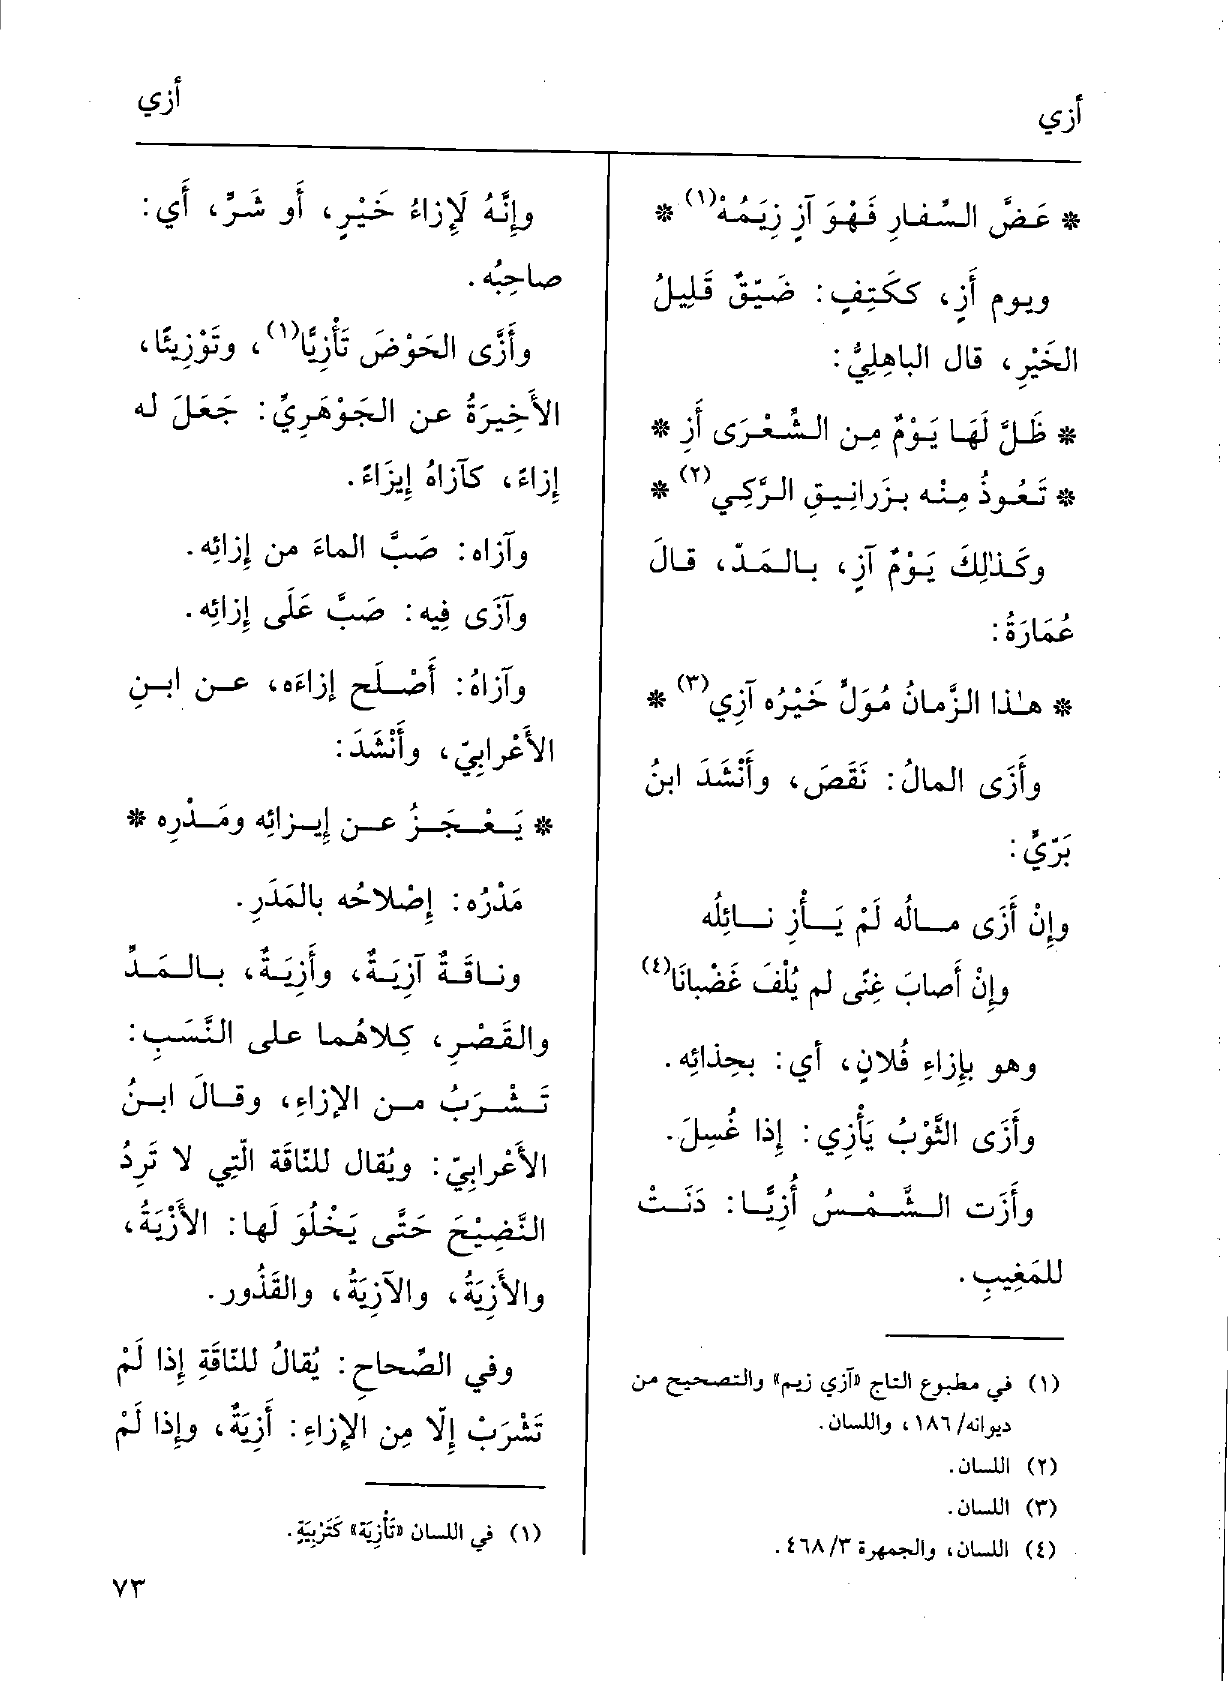 أزي
أزي
* عَضَّ السِّفارِ فَهْوَ آزٍ زِيَمُهْ(١) *
ويوم أَزٍ، ككَتِفٍ: ضَيِّقٌ قَلِيلُ
الخَيْرِ، قال الباهِلِيُّ:
* ظَلَّ لَهَا يَوْمٌ مِن الشِّعْرَى أَزِ *
* تَعُوذُ مِنْه بزَرانِيقِ الرَّكِي(٢) *
وكَذٰلِكَ يَوْمٌ آزٍ، بالمَدّ، قالَ
عُمَارَةُ:
* هٰذا الزَّمانُ مُوَلٍّ خَيْرُه آزِي(٣) *
وأَزَى المالُ: نَقَصَ، وأَنْشَدَ ابنُ
بَرّيٍّ:
وإِنْ أَزَى مالُه لَمْ يَأْزِ نائِلُه
وإِنْ أَصابَ غِنًى لم يُلْفَ غَضْبانَا(٤)
وهو بإِزاءِ فُلانٍ، أي: بحِذائِه.
وأَزَى الثَّوْبُ يَأْزِي: إِذا غُسِلَ.
وأَزَت الشَّمْسُ أُزِيًّا: دَنَتْ
للمَغِيبِ.
(١) في مطبوع التاج «آزي زيم» والتصحيح من
ديوانه/ ١٨٦، واللسان.
(٢) اللسان.
(٣) اللسان.
(٤) اللسان، والجمهرة ٣/ ٤٦٨.
وإِنَّهُ لَإِزاءُ خَيْرٍ، أَو شَرٍّ، أَي:
صاحِبُه.
وأَزَّى الحَوْضَ تَأْزِيًّا(١)، وتَوْزِيئًا،
الأَخِيرَةُ عن الجَوْهَرِيِّ: جَعَلَ له
إِزاءً، كآزاهُ إِيزَاءً.
وآزاه: صَبَّ الماءَ من إِزائِه.
وآزَى فِيه: صَبَّ عَلَى إِزائِه.
وآزاهُ: أَصْلَح إزاءَه، عن ابنِ
الأَعْرابِيّ، وأَنْشَدَ:
* يَعْجَزُ عن إِيزائِه ومَدْرِه *
مَدْرُه: إِصْلاحُه بالمَدَرِ.
وناقَةٌ آزِيَةٌ، وأَزِيَةٌ، بالمَدِّ
والقَصْرِ، كِلاهُما على النَّسَبِ:
تَشْرَبُ من الإزاءِ، وقالَ ابنُ
الأَعْرابِيّ: ويُقال للنّاقَة الّتِي لا تَرِدُ
النَّضِيْحَ حَتَّى يَخْلُوَ لَها: الأَزْيَةُ،
والأَزِيَةُ، والآزِيَةُ، والقَذُور.
وفي الصِّحاحِ: يُقالُ للنّاقَةِ إِذا لَمْ
تَشْرَبْ إِلّا مِن الإِزاءِ: أَزِيَةٌ، وإِذا لَمْ
(١) في اللسان «تَأْزِيَة» كَتَرْبِيَةٍ.
٧٣